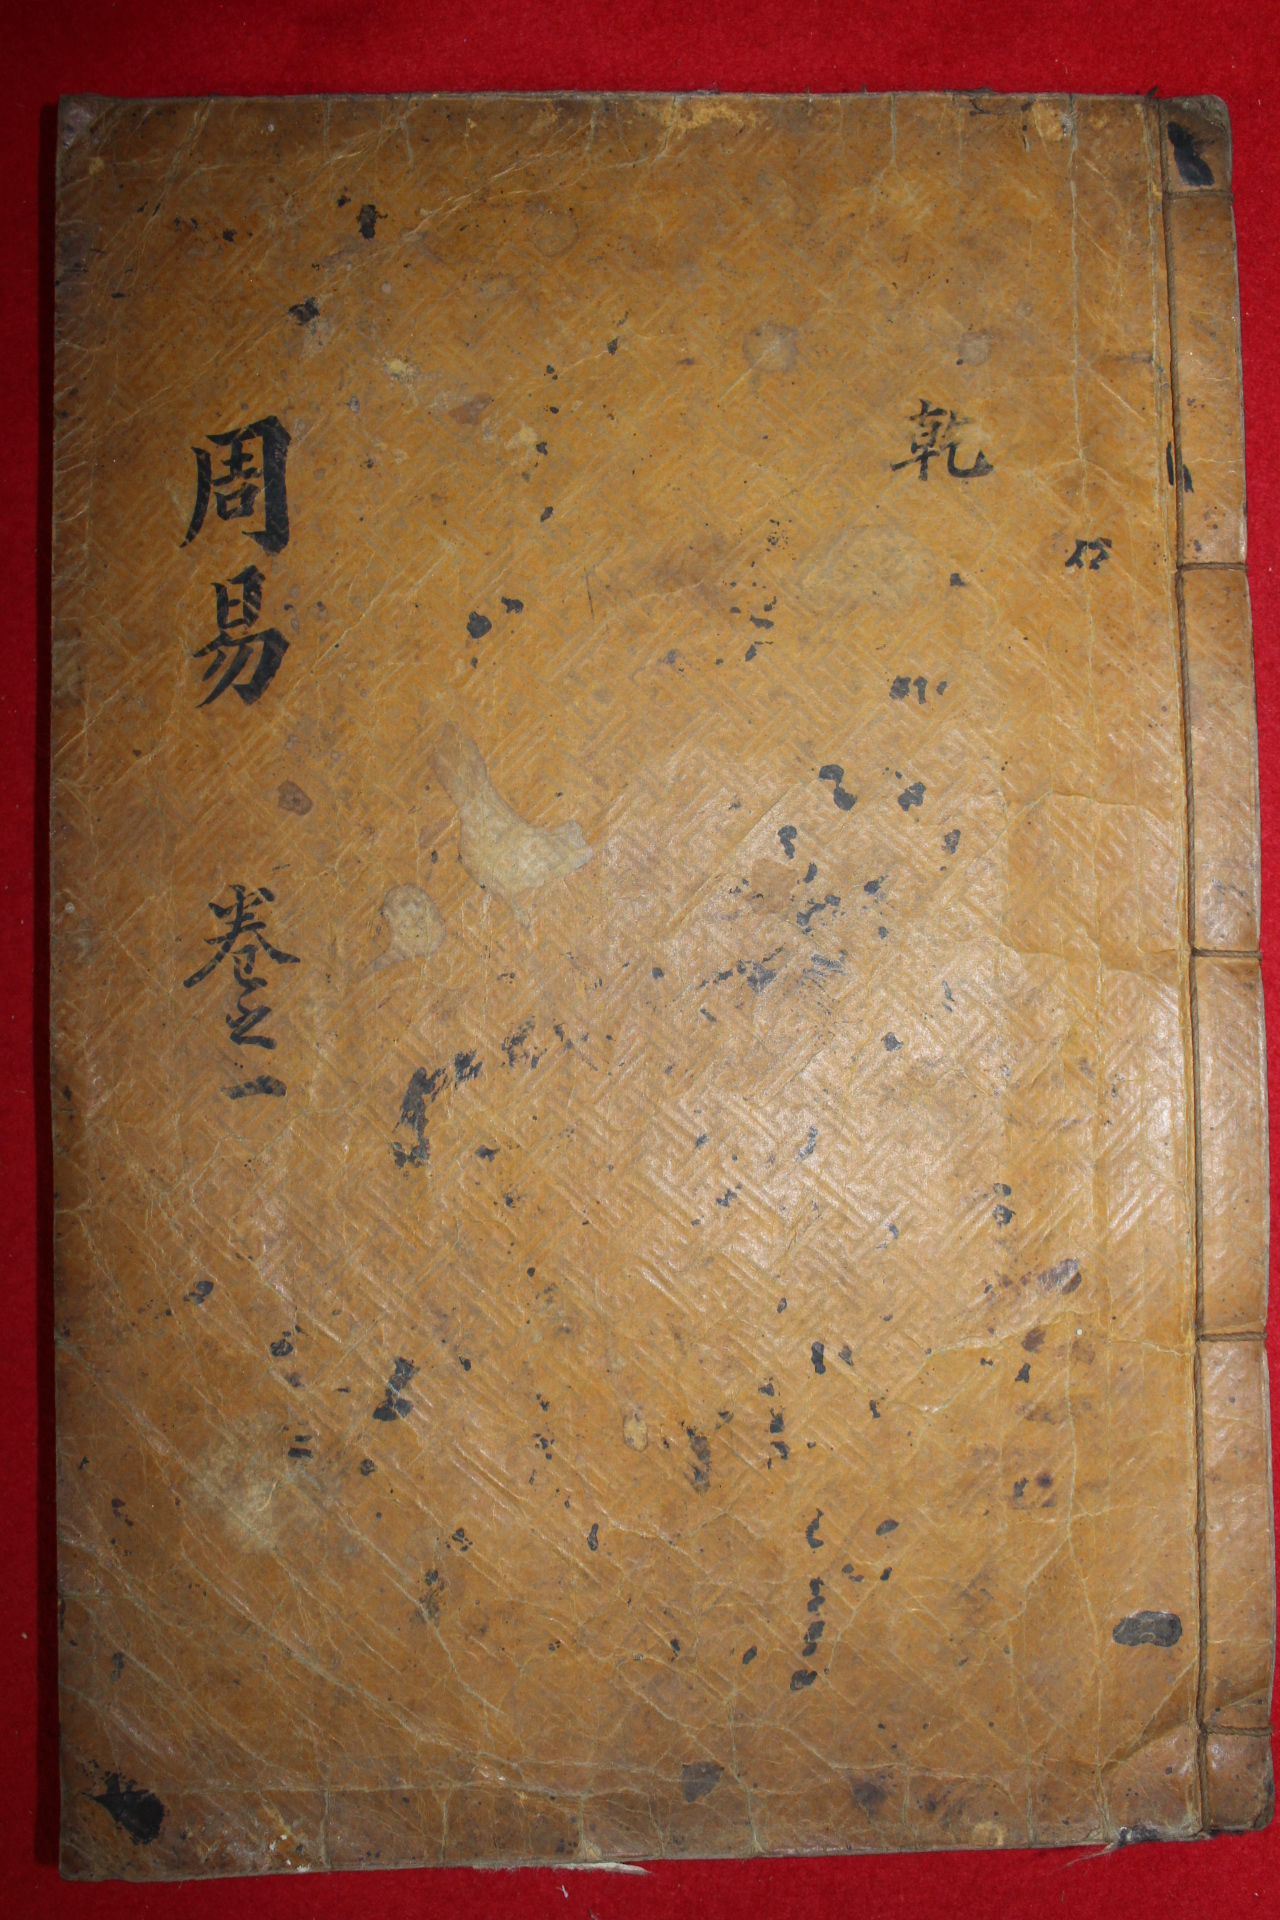 乾
周易 卷之一